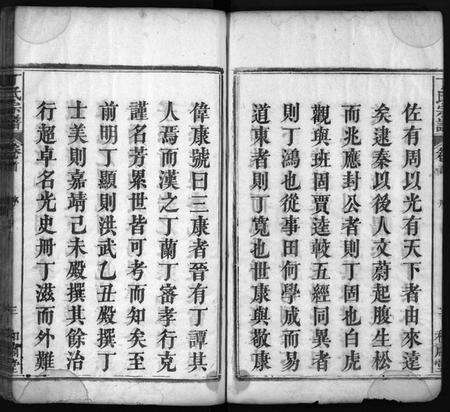 佐有周以光有天下者由來遠
矣逮秦以後人文蔚起腹生松
而兆應封公者則丁固也白虎
觀與班固賈逵較五經同異者
則丁鴻也從事田何學成而易
道東者則丁寬也世康與敬康
偉康號曰三康者晉有丁譚其
人焉而漢之丁蘭丁審孝行克
謹名芳累世皆可考而知矣至
前明丁顯則洪武乙丑殿撰丁
士美則嘉靖己未殿撰其餘治
行超卓名光史冊丁滋而外難
氏宗譜